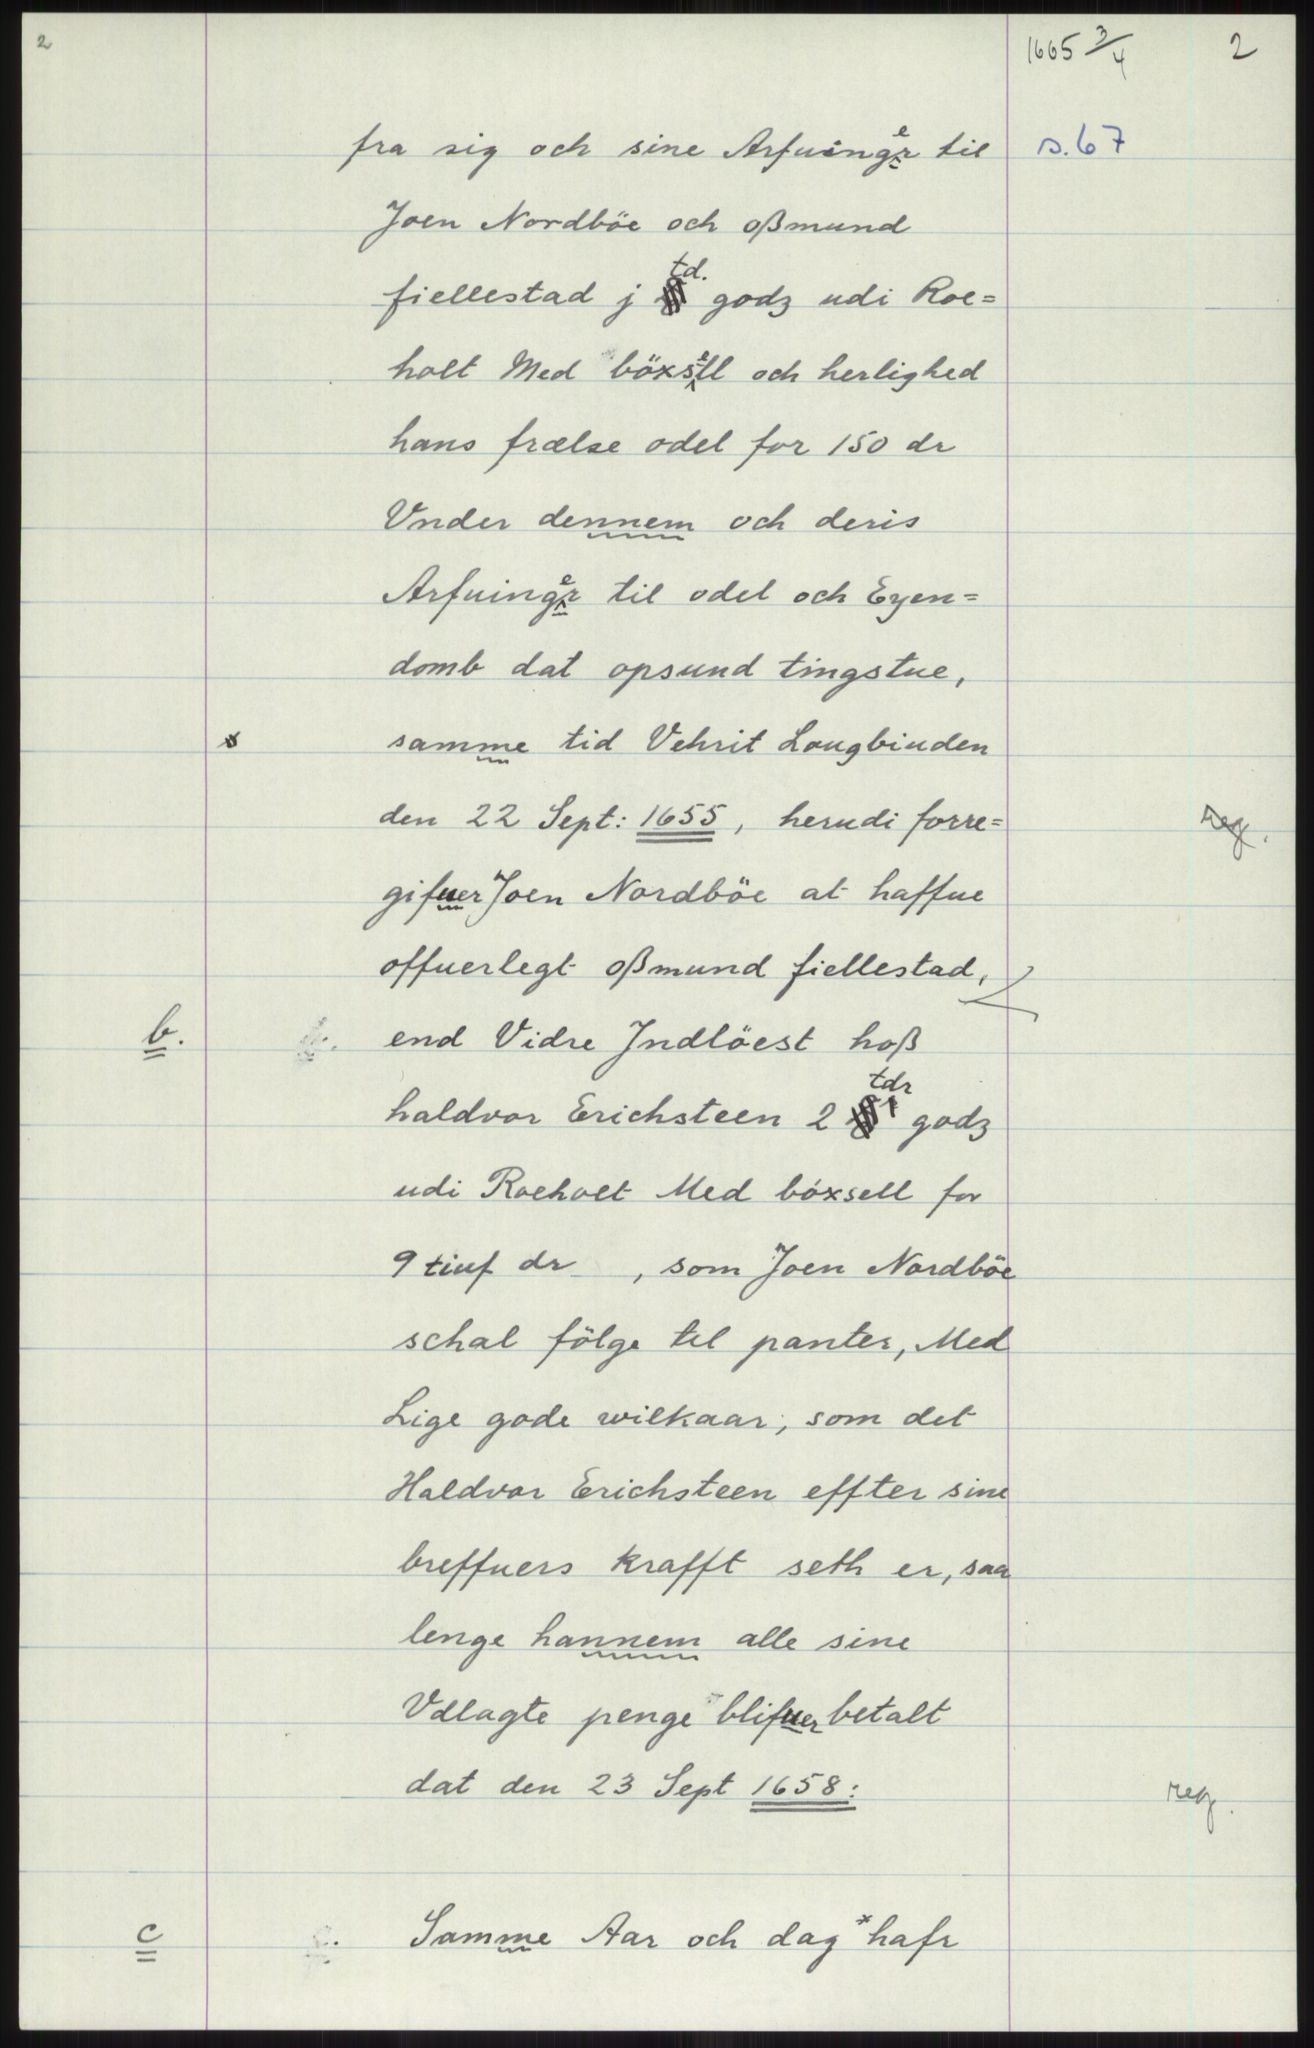 2
1665 3/4
2
fra sig och sine Arfuinger til
s. 67
Joen Nordböe och oßmund
fiellestad j td. godz udi Roe=
holt Med böxsell och herlighed
hans frælse odel for 150 dr
Vnder dennem och deris
Arfuinger til odel och Eyen=
domb dat opsund tingstue,
samme tid Vehrit Laugbiuden
den 22 Sept: 1655, herudi forre=
reg.
gifuer Joen Nordböe at haffue
offuerlegt oßmund fiellestad,
b.
end Vidre Jndlöest hoß
haldvor Erichsteen 2 tdr godz
udi Roeholt Med böxsell for
9 tiuf dr , som Joen Nordböe
schal fölge til panter, Med
Lige gode wilkaar, som det
Haldvor Erichsteen effter sine
breffuers krafft seth er, saa
lenge hannem alle sine
Vdlagte penge blifuer betalt
dat den 23 Sept 1658:
reg.
c
Samme Aar och dag * hafr